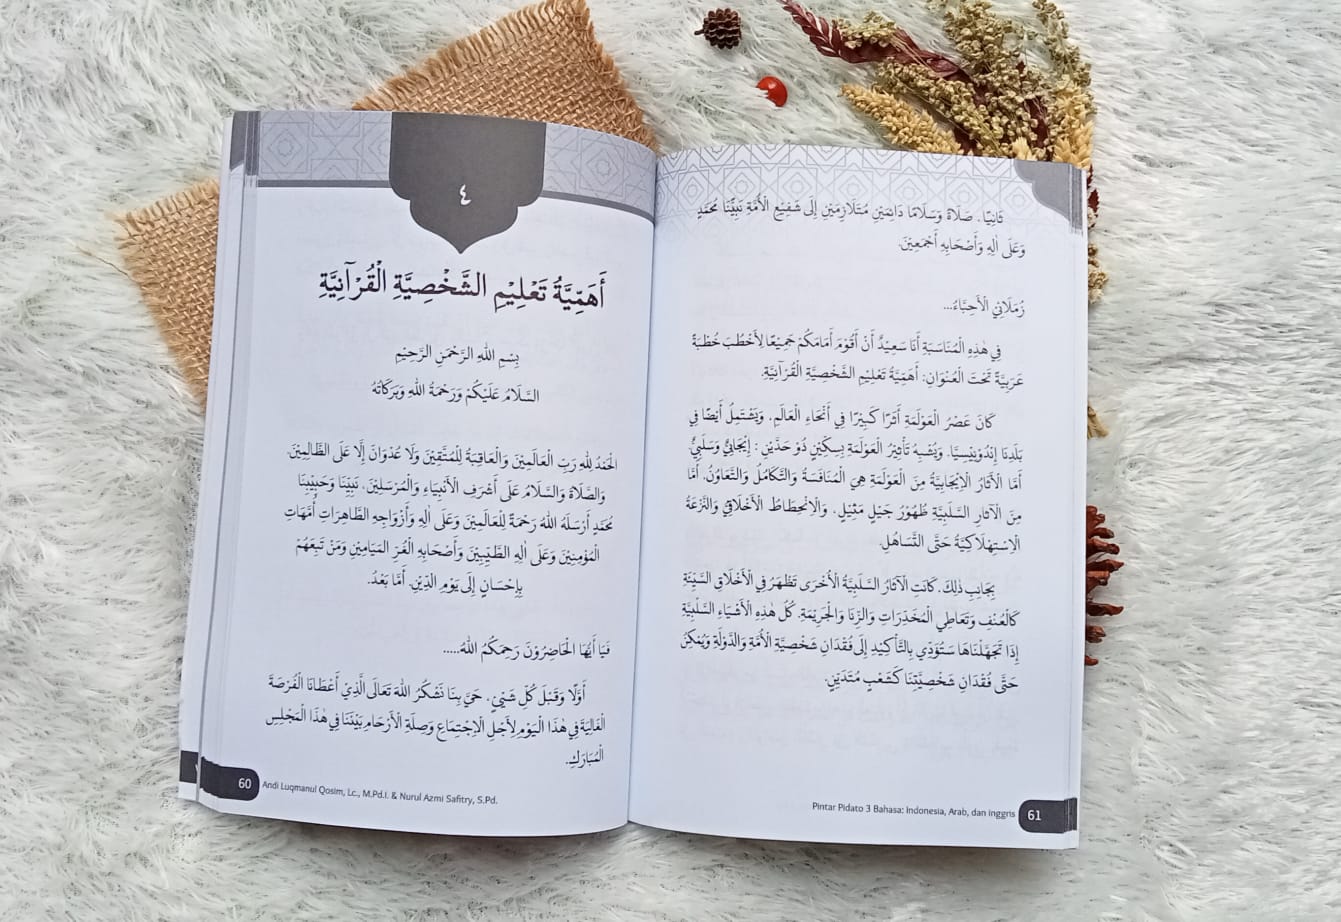 ٤
أَهَمِّيَّةُ تَعْلِيْمِ الشَّخْصِيَّةِ الْقُرْآنِيَّةِ
بِسْمِ اللهِ الرَّحْمٰنِ الرَّحِيْمِ
السَّلَامُ عَلَيْكُمْ وَرَحْمَةُ اللهِ وَبَرَكَاتُهُ
الْحَمْدُ لِلّٰهِ رَبِّ الْعَالَمِيْنَ وَالْعَاقِبَةُ لِلْمُتَّقِيْنَ وَلَا عُدْوَانَ إِلَّا عَلَى الظَّالِمِيْنَ.
وَالصَّلَاةُ وَالسَّلَامُ عَلَى أَشْرَفِ الْأَنْبِيَاءِ وَالْمُرْسَلِيْنَ، نَبِيِّنَا وَحَبِيْبِنَا
مُحَمَّدٍ أَرْسَلَهُ اللهُ رَحْمَةً لِلْعَالَمِيْنَ وَعَلَى اٰلِهِ وَأَزْوَاجِهِ الطَّاهِرَاتِ أُمَّهَاتِ
الْمُؤْمِنِيْنَ وَعَلَى اٰلِهِ الطَّيِّبِيْنَ وَأَصْحَابِهِ الْغُرِّ الْمَيَامِيْنِ وَمَنْ تَبِعَهُمْ
بِإِحْسَانٍ إِلَى يَوْمِ الدِّيْنِ. أَمَّا بَعْدُ.
فَيَا أَيُّهَا الْحَاضِرُوْنَ رَحِمَكُمُ اللهُ.....
أَوَّلًا وَقَبْلَ كُلِّ شَيْئٍ، حَيَّ بِنَا نَشْكُرُ اللهَ تَعَالَى الَّذِيْ أَعْطَانَا الْفُرْصَةَ
الْغَالِيَةَ فِي هٰذَا الْيَوْمِ لِأَجْلِ الْاِجْتِمَاعِ وَصِلَةِ الْأَرْحَامِ بَيْنَنَا فِي هٰذَا الْمَجْلِسِ
الْمُبَارَكِ.
60 Andi Luqmanul Qosim, Lc., M.Pd.I. & Nurul Azmi Safitry, S.Pd.
ثَانِيًا، صَلَاةً وَسَلَامًا دَائِمَيْنِ مُتَلَازِمَيْنِ إِلَى شَفِيْعِ الْأُمَّةِ نَبِيِّنَا مُحَمَّدٍ
وَعَلَى اٰلِهِ وَأَصْحَابِهِ أَجْمَعِيْنَ.
زُمَلَائِيْ الْأَحِبَّاءُ...
فِي هٰذِهِ الْمُنَاسَبَةِ أَنَا سَعِيْدٌ أَنْ أَقُوْمَ أَمَامَكُمْ جَمِيْعًا لِأَخْطُبَ خُطْبَةً
عَرَبِيَّةً تَحْتَ الْعُنْوَانِ: أَهَمِّيَّةُ تَعْلِيْمِ الشَّخْصِيَّةِ الْقُرْآنِيَّةِ.
كَانَ عَصْرُ الْعَوْلَمَةِ أَثَرًا كَبِيْرًا فِي أَنْحَاءِ الْعَالَمِ، وَيَشْتَمِلُ أَيْضًا فِي
بَلَدِنَا إِنْدُوْنِيْسِيَّا. وَيُشْبِهُ تَأْثِيْرُ الْعَوْلَمَةِ بِسِكِّيْنٍ ذُوْ حَدَّيْنِ : إِيْجَابِيٌّ وَسَلْبِيٌّ.
أَمَّا الْآثَارُ الْإِيْجَابِيَّةُ مِنَ الْعَوْلَمَةِ هِيَ الْمُنَافَسَةُ وَالتَّكَامُلُ وَالتَّعَاوُنُ. أَمَّا
مِنَ الْآثَارِ السَّلْبِيَّةِ ظُهُوْرُ جَيْلٍ مَثِيْلٍ، وَالْاِنْحِطَاطُ الْأَخْلَاقِيُّ وَالنَّزْعَةُ
الْاِسْتِهْلَاكِيَّةُ حَتَّى التَّسَاهُلِ.
بِجَانِبِ ذٰلِكَ، كَانَتِ الْآثَارُ السَّلْبِيَّةُ الْأُخْرَى تَظْهَرُ فِي الْأَخْلَاقِ السَّيِّئَةِ
كَالْعُنْفِ وَتَعَاطِي الْمُخَدِّرَاتِ وَالزِّنَا وَالْجَرِيْمَةِ. كُلُّ هٰذِهِ الْأَشْيَاءِ السَّلْبِيَّةِ
إِذَا تَجَهَّلْنَاهَا سَتُؤَدِّي بِالتَّأْكِيْدِ إِلَى فُقْدَانِ شَخْصِيَّةِ الْأُمَّةِ وَالدَّوْلَةِ وَيُمْكِنُ
حَتَّى فُقْدَانِ شَخْصِيَّتِنَا كَشَعْبٍ مُتَدَيِّنٍ.
Pintar Pidato 3 Bahasa: Indonesia, Arab, dan Inggris 61